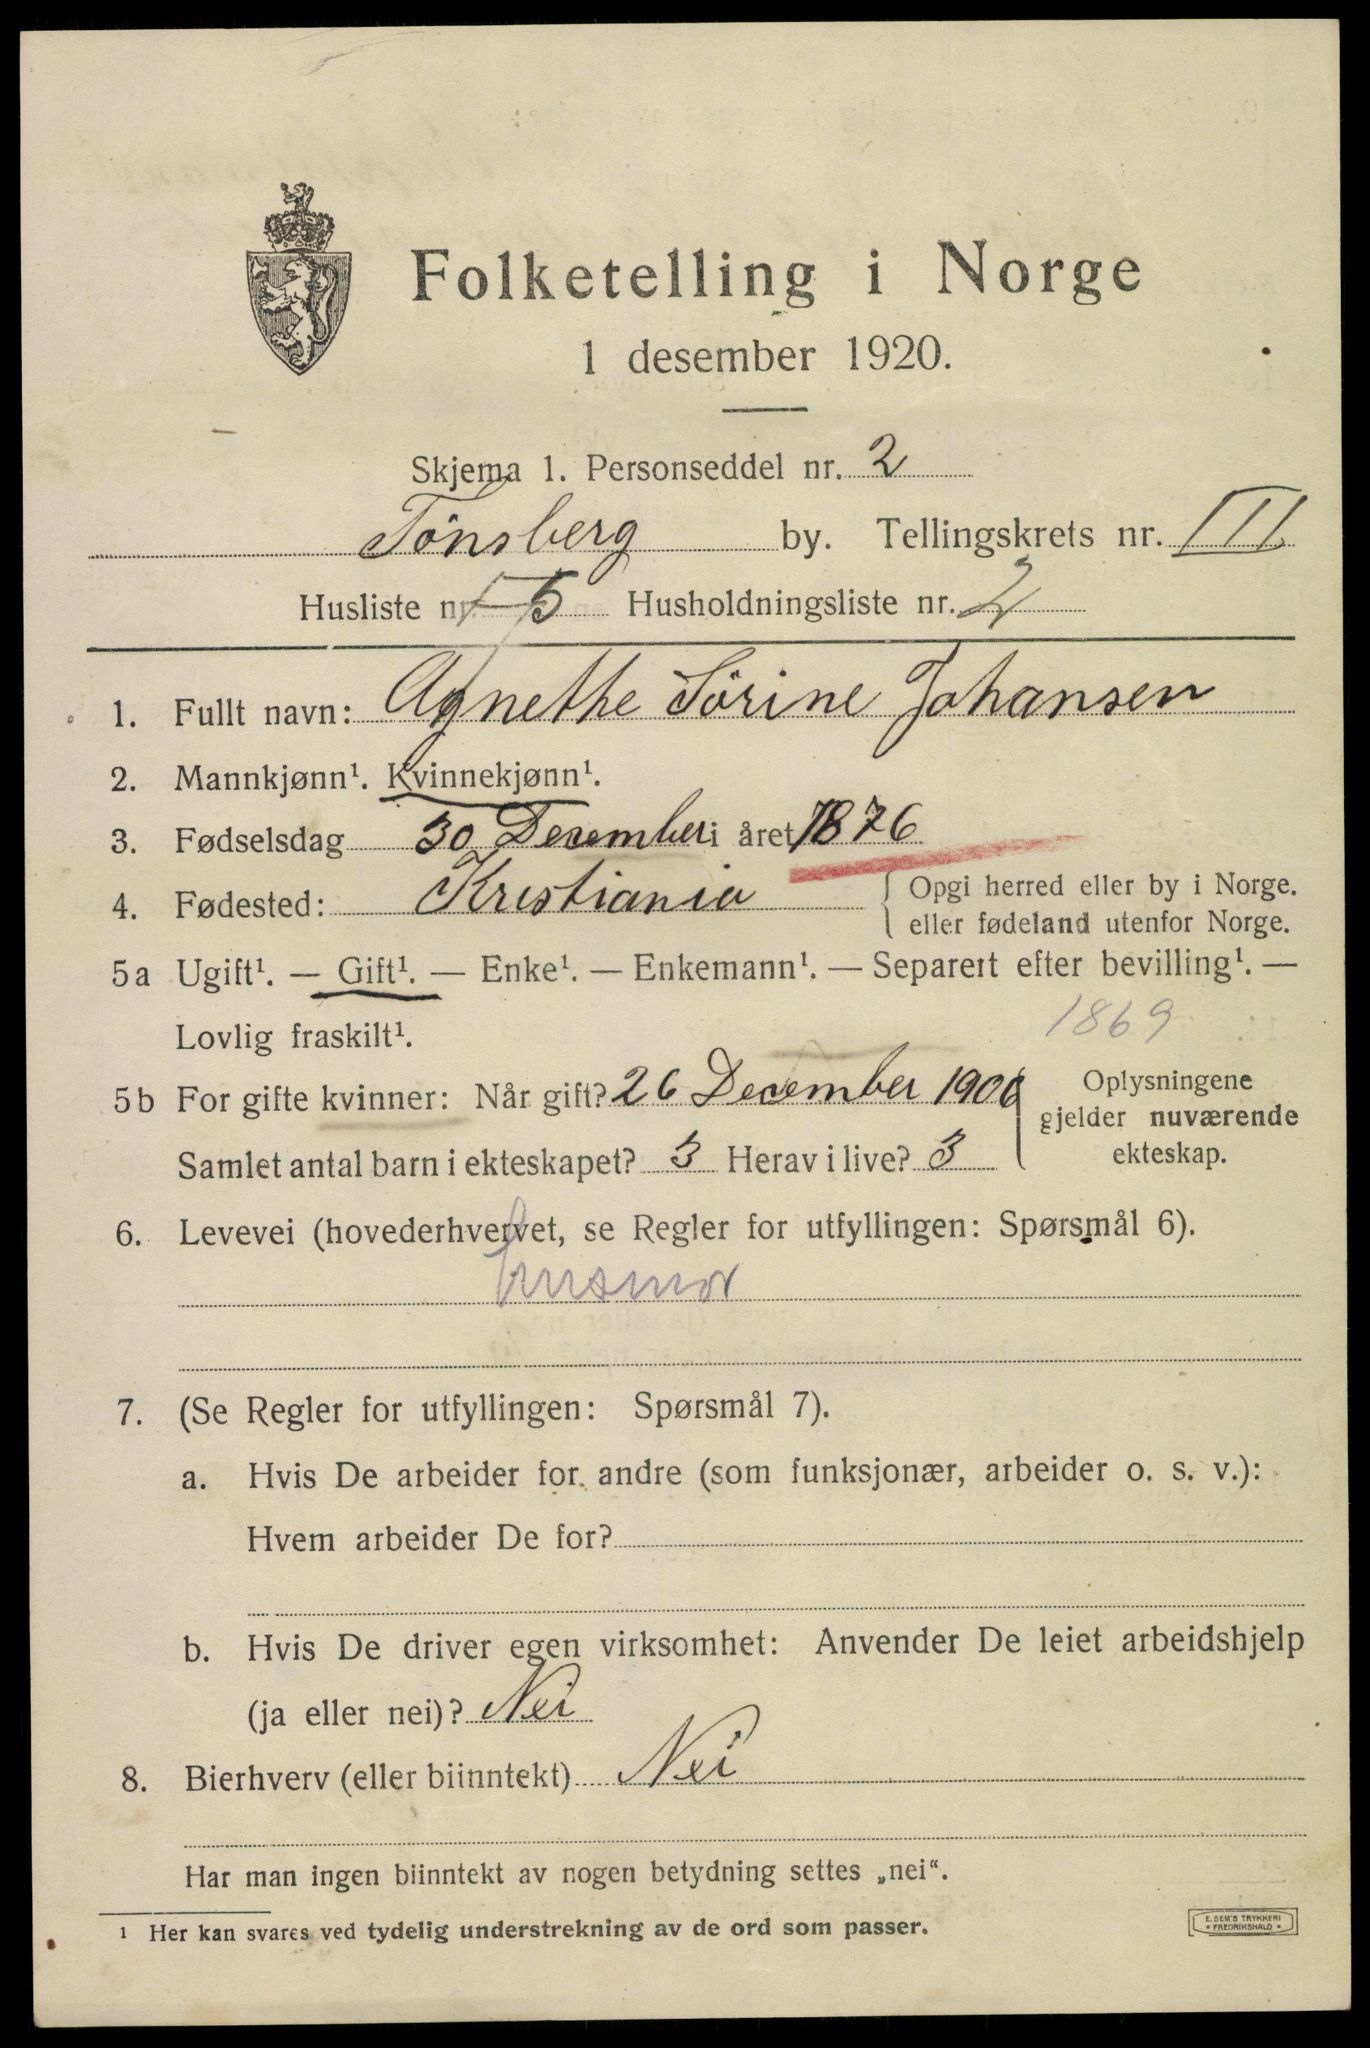 Folketelling i Norge
1 desember 1920.
Skjema 1. Personseddel nr. 2
Tönsberg by. Tellingskrets nr. III
Husliste nr. 5 Husholdningsliste nr. 2
1. Fullt navn: Agnethe Sörine Johansen
2. Mannkjønn¹. Kvinnekjønn¹.
3. Fødselsdag 30 Desember i året 1876
4. Fødested: Kristiania { Opgi herred eller by i Norge.
{ eller fødeland utenfor Norge.
5a Ugift¹. — Gift¹. — Enke¹. — Enkemann¹. — Separert efter bevilling¹. —
Lovlig fraskilt¹. 1869
5b For gifte kvinner: Når gift? 26 Desember 1906 Oplysningene
gjelder nuværende
Samlet antal barn i ekteskapet? 3 Herav i live? 3 ekteskap.
6. Levevei (hovederhvervet, se Regler for utfyllingen: Spørsmål 6).
husmor
7. (Se Regler for utfyllingen: Spørsmål 7).
a. Hvis De arbeider for andre (som funksjonær, arbeider o. s. v.):
Hvem arbeider De for?
b. Hvis De driver egen virksomhet: Anvender De leiet arbeidshjelp
(ja eller nei)? Nei
8. Bierhverv (eller biinntekt) Nei
Har man ingen biinntekt av nogen betydning settes „nei“.
¹ Her kan svares ved tydelig understrekning av de ord som passer.
E. SEM'S TRYKKERI
* FREDRIKSHALD *